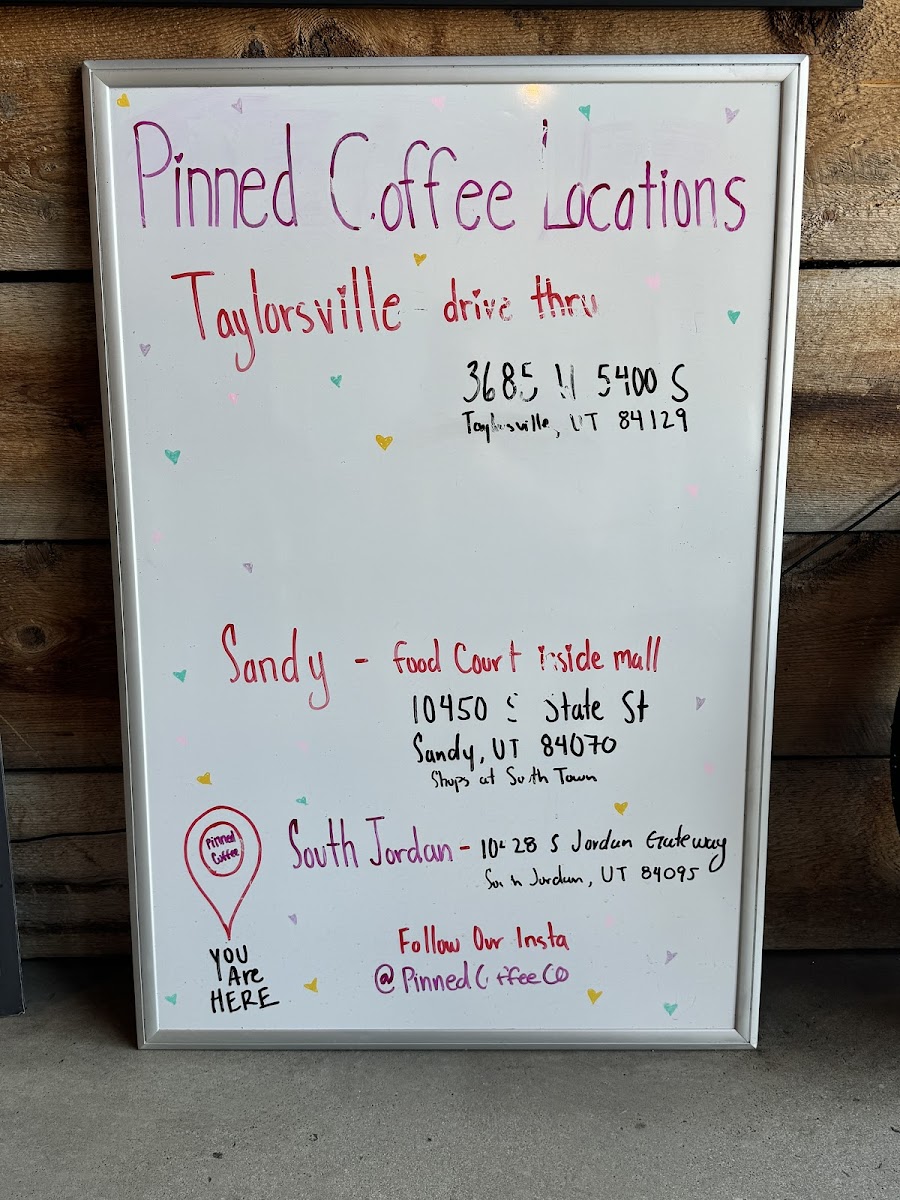 Pinned Coffee Locations
Taylorsville drive thru
3685 W 5400 S
Taylorsville, UT 84129
Sandy - Food Court inside mall
10450 S State St
Sandy, UT 84070
Shops at South Town
Pinned
Coffee
South Jordan - S Jordan Gateway
South Jordan, UT 84095
YOU
Are
HERE
Follow Our Insta
@PinnedCoffeeCo